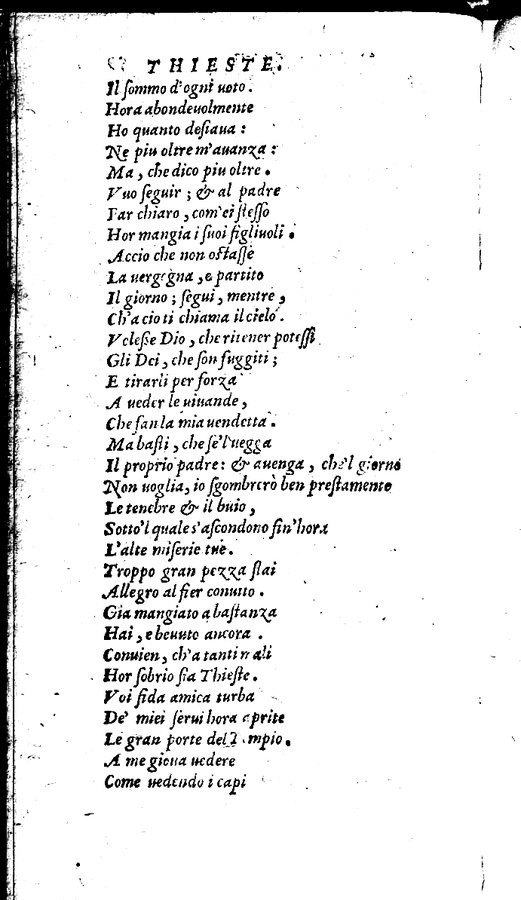 THIESTE.
Il sommo d'ogni uoto.
Hora abondeuolmente
Ho quanto desiaua:
Ne piu oltre m'auanza:
Ma, che dico piu oltre.
Vuo seguir; & al padre
Far chiaro, com'ei stesso
Hor mangia i suoi figliuoli.
Accio che non ostasse
La uergogna, e partito
Il giorno; segui, mentre,
Ch'a cio ti chiama il cielo.
Volesse Dio, che ritener potessi
Gli Dei, che son fuggiti;
E tirarli per forza
A ueder le uiuande,
Che fan la mia uendetta.
Ma basti, che se'l uegga
Il proprio padre: & auenga, che'l giorno
Non uoglia, io sgombrerò ben prestamente
Le tenebre & il buio,
Sotto'l quale s'ascondono fin'hora
L'alte miserie tue.
Troppo gran pezza stai
Allegro al fier conuito.
Gia mangiato a bastanza
Hai, e beuuto ancora.
Conuien, ch'a tanti mali
Hor sobrio sia Thieste.
Voi fida amica turba
De' miei serui hora aprite
Le gran porte del Tempio.
A me gioua uedere
Come uedendo i capi